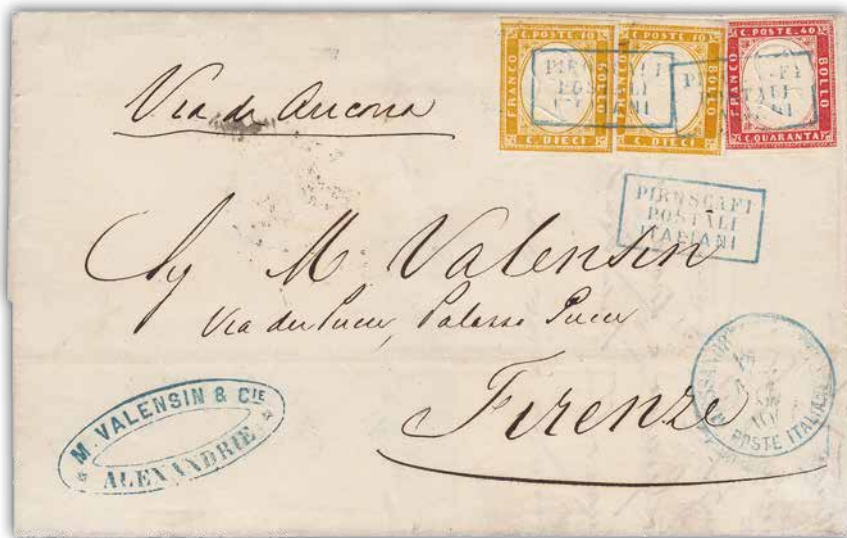 C. POSTE. 10
FRANCO
BOLLO
C. DIECI
C. POSTE. 10
FRANCO
BOLLO
C. DIECI
C. POSTE. 40
FRANCO
BOLLO
C. QUARANTA
Via di Ancona
PIROSCAFI
POSTALI
ITALIANI
M Valensin
Via dei Pucci, Palazzo Pucci
Firenze
M. VALENSIN & CIE
ALEXANDRIE
POSTE ITALIANE